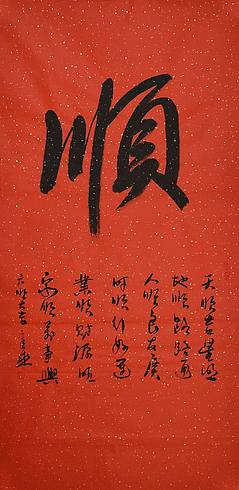 順
天順吉星
地順路路通
人順良友廣
時順行好運
業順財源旺
家順萬事興
六順大吉